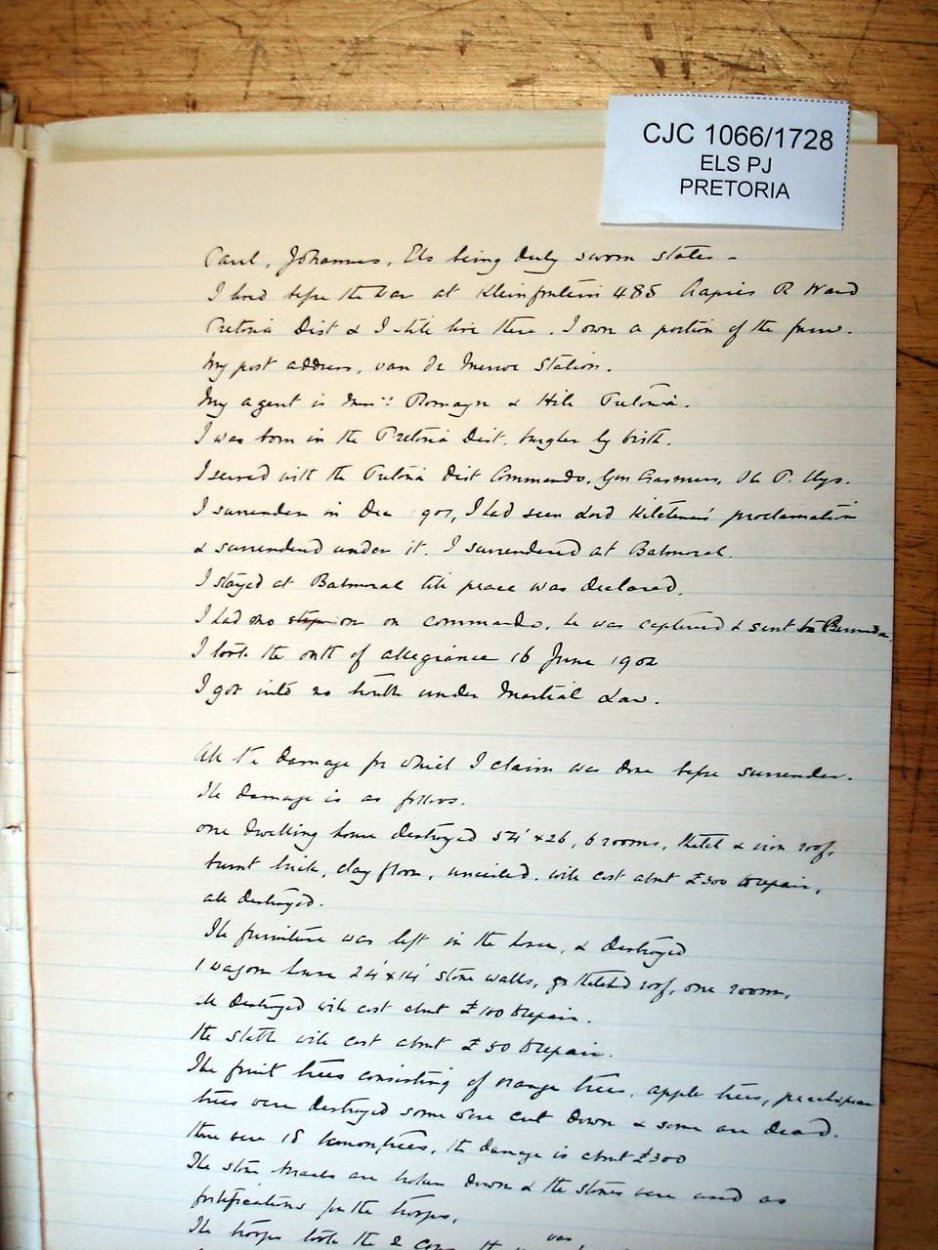 CJC 1066/1728
ELS PJ
PRETORIA
Paul, Johannes, Els being duly sworn states -
I lived before the War at Kleinfontein 485 Aapies R Ward
Pretoria Dist & I still live there. I own a portion of the farm.
My post address, van de Merwe Station.
My agent is Messrs Romayn & Hile Pretoria.
I was born in the Pretoria Dist, burgher by birth.
I served with the Pretoria Dist Commando, Gen Erasmus, P. Uys.
I surrender in Dec 901, I had seen Lord Kitchener's proclamation
& surrendered under it. I surrendered at Balmoral.
I stayed at Balmoral till peace was declared.
I had one son on commando, he was captured & sent to Bermuda.
I took the oath of allegiance 16 June 1902
I got into no trouble under Martial Law.
All the damage for which I claim was done before surrender.
The damage is as follows.
one dwelling house destroyed 54' x 26, 6 rooms, thatch & iron roof,
burnt brick, clay floor, unceiled. will cost about £300 to repair,
all destroyed.
The furniture was left in the house, & destroyed
1 wagon house 24' x 14' stone walls, thatched roof, one room,
all destroyed will cost about £100 to repair.
the stable will cost about £50 to repair.
The fruit trees consisting of orange trees, apple trees, peach & pear
trees were destroyed some were cut down & some are dead.
there were 18 lemon trees, the damage is about £300
The stone kraals are broken down & the stones were used as
fortifications for the troops,
The troops took the 2 cows was